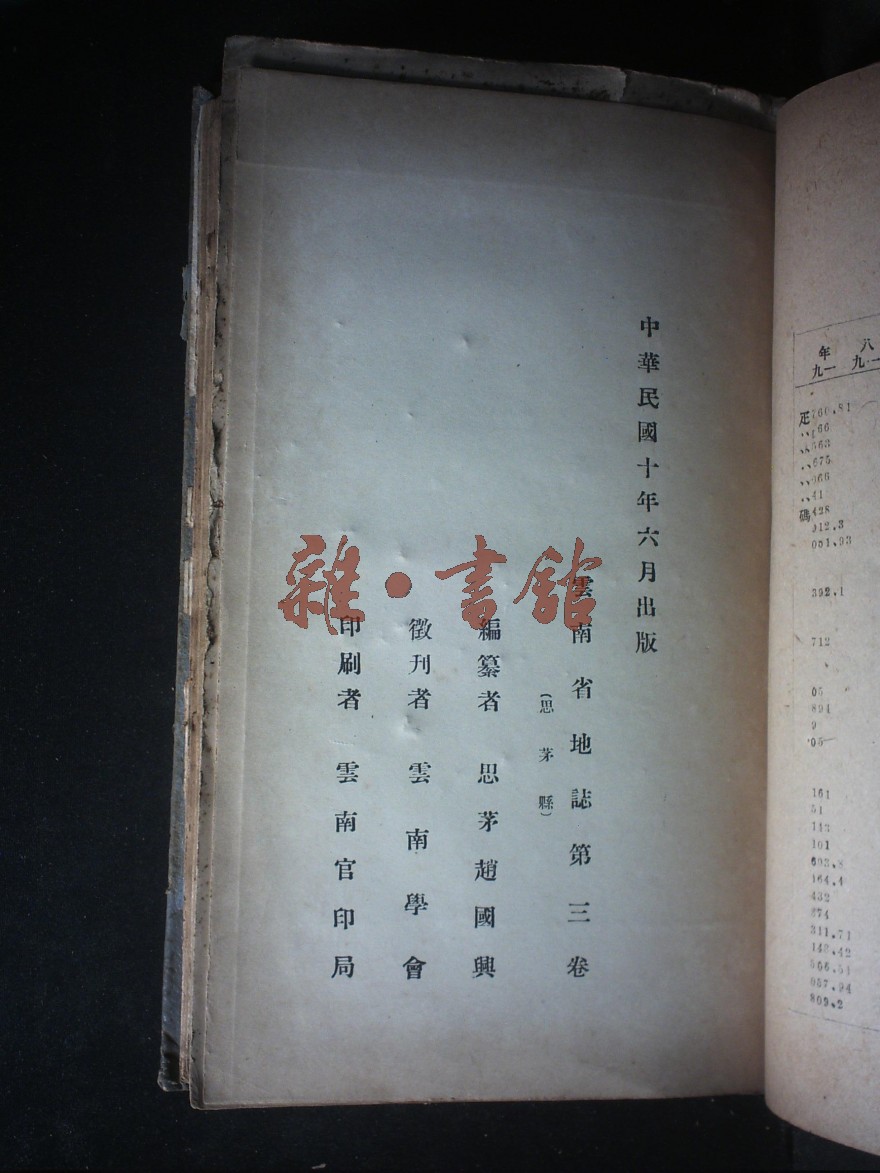 中華民國十年六月出版
雲南省地誌第三卷
（思茅縣）
編纂者 思茅趙國興
徵刊者 雲南學會
印刷者 雲南官印局
雜·書館
八
九一
年
九一
疋760.81
,,166
,,563
,,675
,,066
,,41
碼428
912.3
051.93
392.1
712
05
894
9
05
161
51
113
101
693.8
164.4
432
874
311.71
148.42
566.51
087.94
809.2